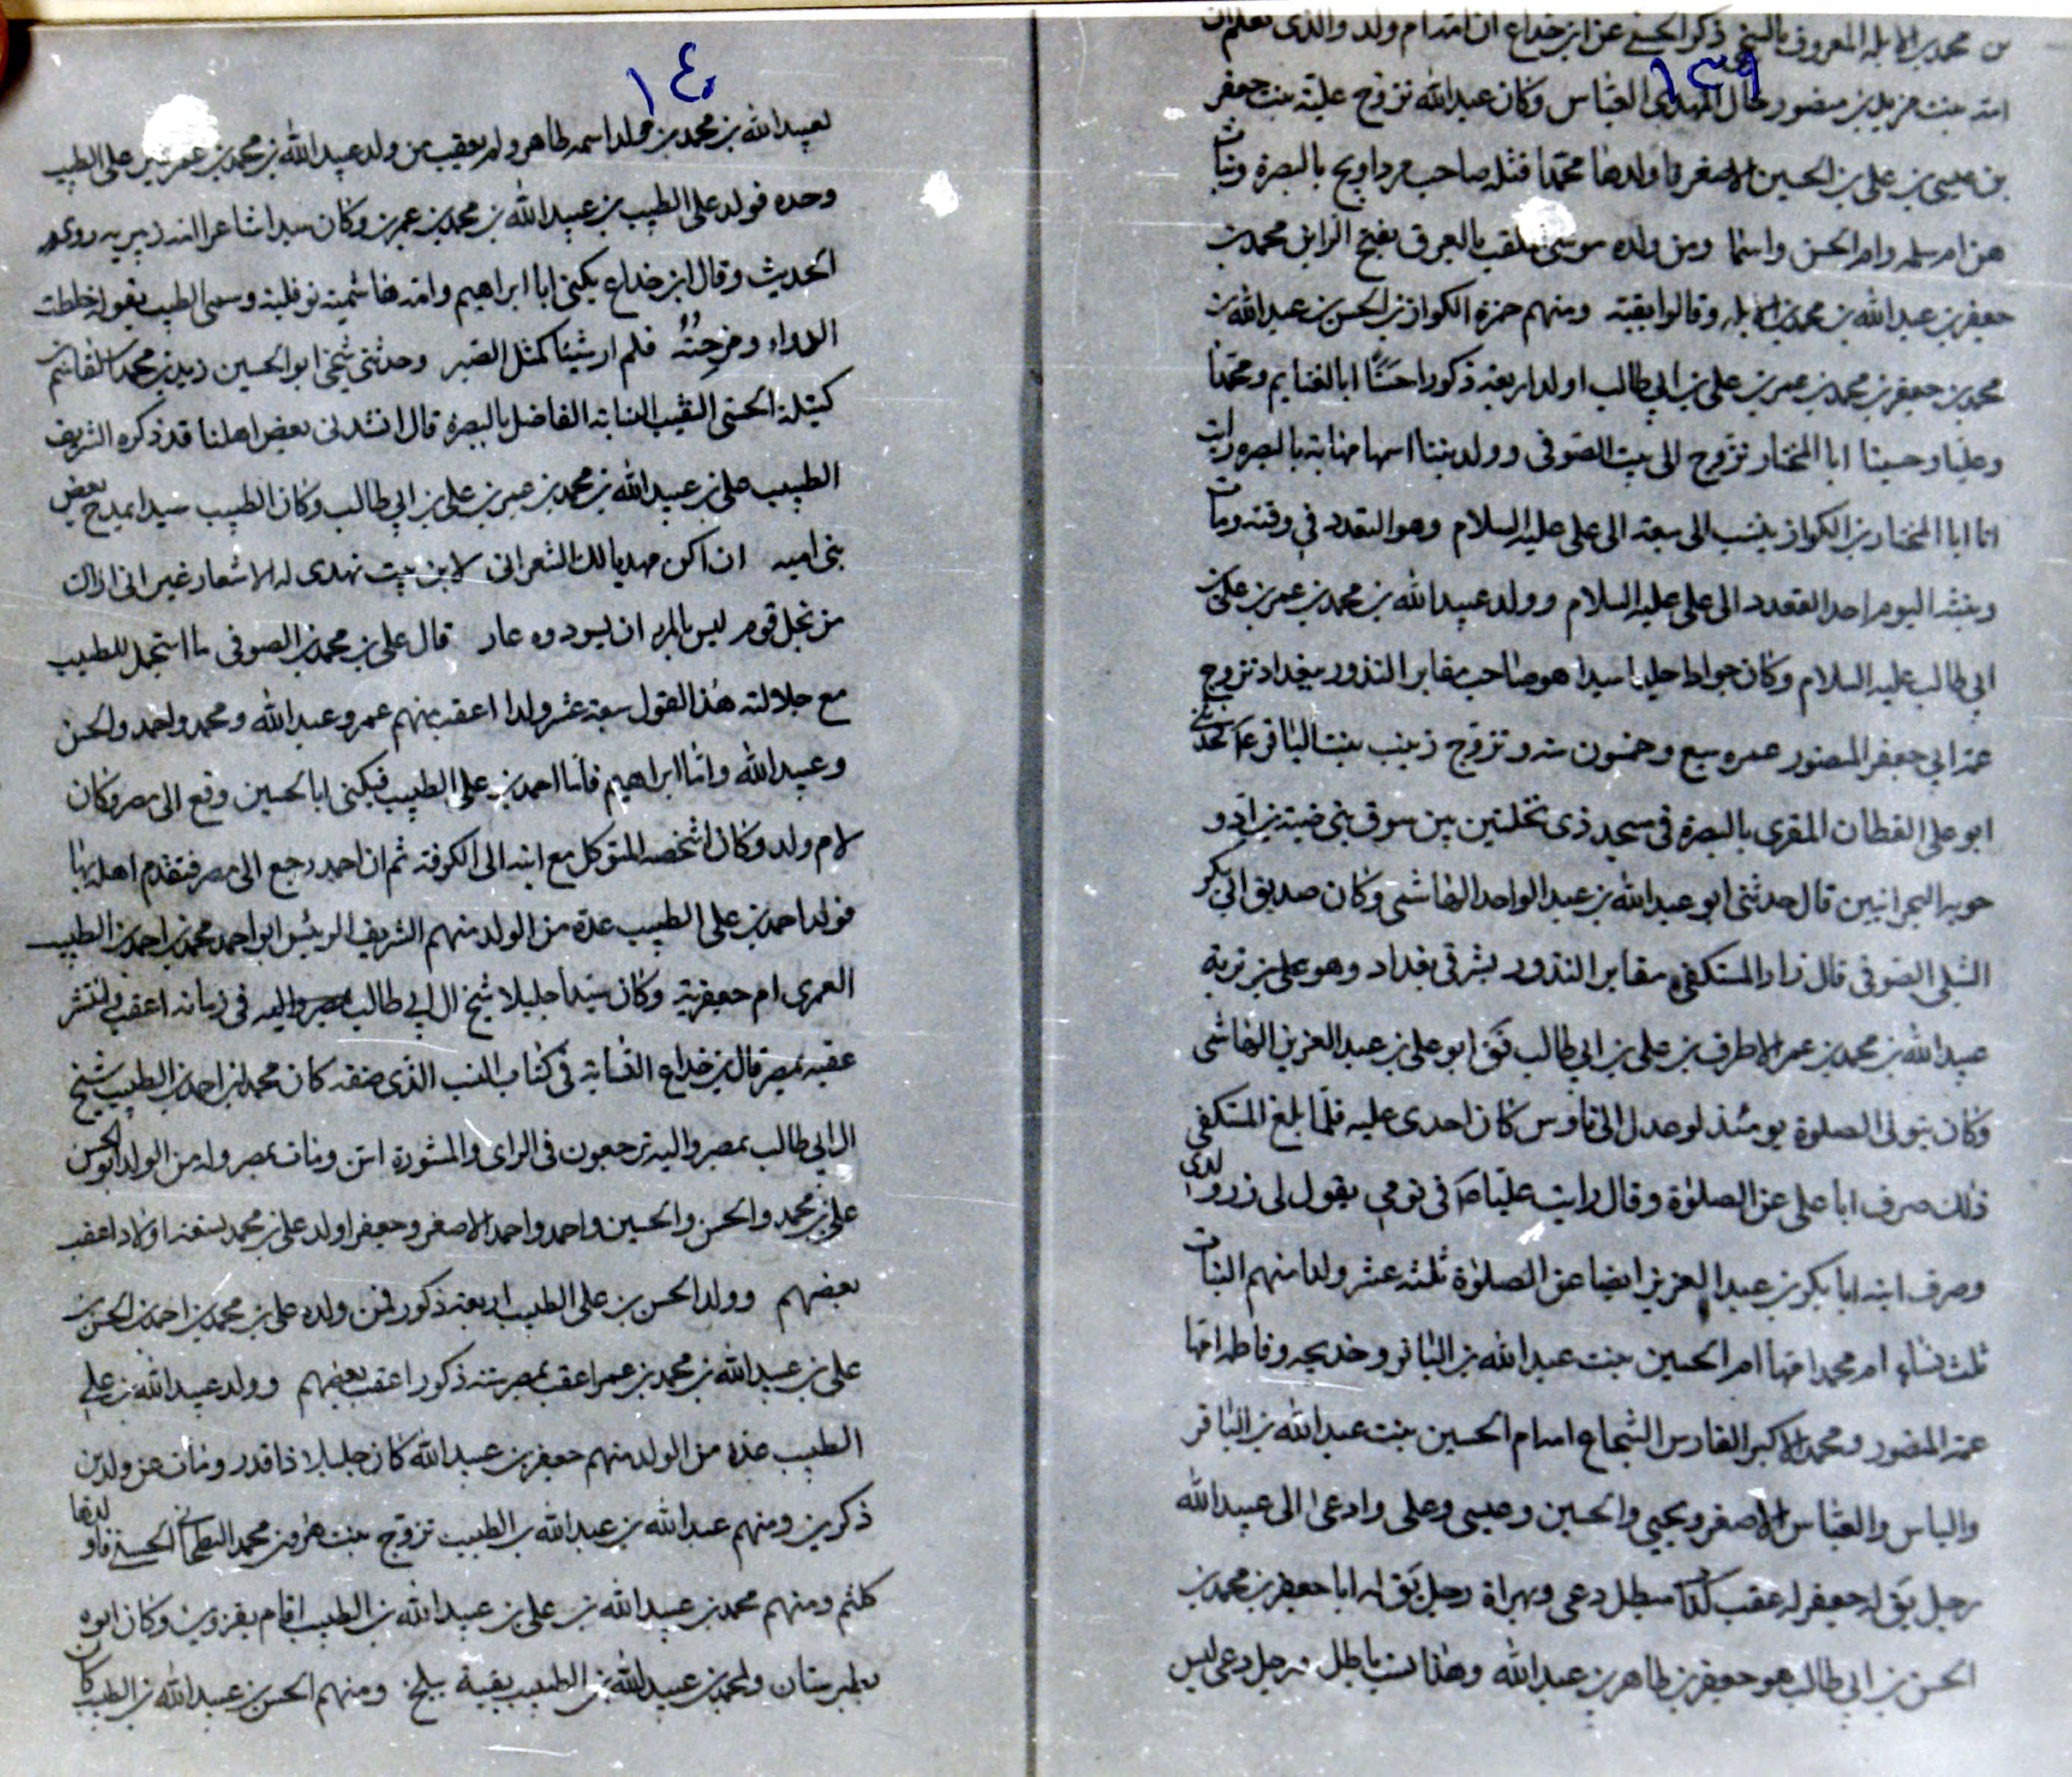 ١٣٩
بن محمد بن الابله المعروف بالبنج ذكر الحسنى عن ابن خداع ان امه ام ولد والذى نعلم ان
امه بنت مزيد بن منصور خال المهدى العباس وكان عبد الله تزوج علية بنت جعفر
بن عيسى بن على بن الحسين الاصغر فاولدها محمدا قتله صاحب مرداويج بالبصرة وبنات
هن ام سلمه وام الحسن واسما ومن ولده موسى الملقب بالعرق بفتح الرا بن محمد بن
جعفر بن عبد الله بن محمد بن الابله وقالوا بقية ومنهم حمزة الكوازن بن الحسن بن عبد الله بن
محمد بن جعفر بن محمد بن عمر بن على بن ابى طالب اولد اربعة ذكورا حسنا ابا الغنايم ومحمدا
وعليا وحسينا ابا المختار تزوج الى بيت الصوفى وولد بنتا اسمها مهنابة بالبصره رايت
انا ابا المختار بن الكواز ينسب الى سبعة الى على عليه السلام وهو القعدد فى وقته ومات
وبنته اليوم احد القعدد الى على عليه السلام وولد عبيد الله بن محمد بن عمر بن على بن
ابى طالب عليه السلام وكان جوادا حليما سيدا هو صاحب مقابر النذور ببغداد تزوج
عمة ابى جعفر المنصور عمره سبع وخمسون سنه وتزوج زينب بنت الباقر ع حدثنى
ابو على القطان المقرى بالبصرة فى مسجد ذى نخلتين بين سوق بنى ضبة بن اد و
البحرانيين قال حدثنى ابو عبد الله بن عبد الواحد الهاشمى وكان صديق ابى بكر
الشبلى الصوفى قال زار المستكفى مقابر النذور بشرقى بغداد وهو على بن تربة
عبيد الله بن محمد بن عمر الاطرف بن على بن ابى طالب فق ابو على بن عبد العزيز الهاشمى
وكان يتولى الصلوة يومئذ لو عدل الى ناوس كان احدى عليه فلما بلغ المستكفى
ذلك صرف ابا على عن الصلوة وقال رايت عليا ص فى نومى يقول لى زر ولدى
وصرف ابنه ابا بكر بن عبد العزيز ايضا عن الصلوة ثلثه عشر ولدا منهم البنات
ثلث نساء ام محمد امها ام الحسين بنت عبد الله بن الباقر وخديجه وفاطمه امها
عمة المنصور ومحمد الاكبر الفارس الشجاع امه ام الحسين بنت عبد الله بن الباقر
والياس والعباس الاصغر ويحيى والحسين وعيسى وعلى وادعى الى عبيد الله
رجل يق له جعفر له عقب مبطل دعى وبهراة رجل يق له ابا جعفر بن محمد بن
الحسن بن ابى طالب هو جعفر بن طاهر بن عبد الله وهذا نسب باطل رجل دعى ليس
١٤٠
لعبيد الله بن محمد بن ولد اسمه طاهر ولم يعقب من ولد عبيد الله بن محمد بن عمر غير على الطيب
وحده فولد على الطبيب بن عبيد الله بن محمد بن عمر بن وكان سيدا شاعرا امه زبيريه روى
الحديث وقال ابن خداع يكنى ابا ابراهيم وامه هاشمية نوفلية وسمى الطبيب بقوله خلطت
الدواء ومزجته فلم ار شيئا كمثل الصبر وحدثنى شيخى ابو الحسين زيد بن محمد بن القاسم
كتيلة الحسنى النقيب النسابة الفاضل بالبصرة قال انشدنى بعض اهلنا قد ذكره الشريف
الطبيب على بن عبيد الله بن محمد بن عمر بن على بن ابى طالب وكان الطبيب سيدا يمدح بعض
بنى اميه ان اكن مهديا لك الشعر انى لابن بيت تهدى له الاشعار غير انى اراك
من نجل قوم ليس بالمرء ان يسودوه عار قال على بن محمد بن الصوفى ما استجمل للطبيب
مع جلالته هذا القول سبعة عشر ولدا اعقب منهم عمر وعبد الله ومحمد واحمد والحسن
وعبيد الله واما ابراهيم فاما احمد بن على الطبيب فيكنى ابا الحسين وقع الى مصر وكان
لام ولد وكان اشخصه المتوكل مع ابنه الى الكوفة ثم ان احمد رجع الى مصر فتقدم اهله بها
فولد احمد بن على الطبيب عدة من الولد منهم الشريف الرئيس ابو احمد محمد بن احمد بن الطبيب
العمرى ام جعفرية وكان سيدا جليلا شيخ ال ابى طالب بمصر واليه فى زمانه اعقب وانتشر
عقبه بمصر قال بن خداع النسابه فى كتاب النسب الذى صنفه كان محمد بن احمد بن الطبيب شيخ
ال ابى طالب بمصر واليه ترجعون فى الراى والمشورة اسن ومات بمصر وله من الولد ابو الحسن
على بن محمد والحسن والحسين واحمد واحمد الاصغر وجعفر اولد على بن محمد تسعة اولاد اعقب
بعضهم وولد الحسن بن على الطبيب اربعة ذكور فمن ولده على بن محمد بن احمد بن الحسن بن
على بن عبيد الله بن محمد بن عمر اعقب بمصر ستة ذكور اعقب بعضهم وولد عبيد الله بن على
الطبيب عدة من الولد منهم جعفر بن عبيد الله كان جليلا ذا قدر ومات عن ولدين
ذكرين ومنهم عبد الله بن عبيد الله بن الطبيب تزوج بنت هرون بن محمد البطحانى الحسنى فاولدها
كلثم ومنهم محمد بن عبيد الله بن على بن عبيد الله بن الطبيب اقام بقزوين وكان ابوه
بطبرستان ولمحمد بن عبيد الله بن الطبيب بقية ببلخ ومنهم الحسن بن عبيد الله بن الطيب كان